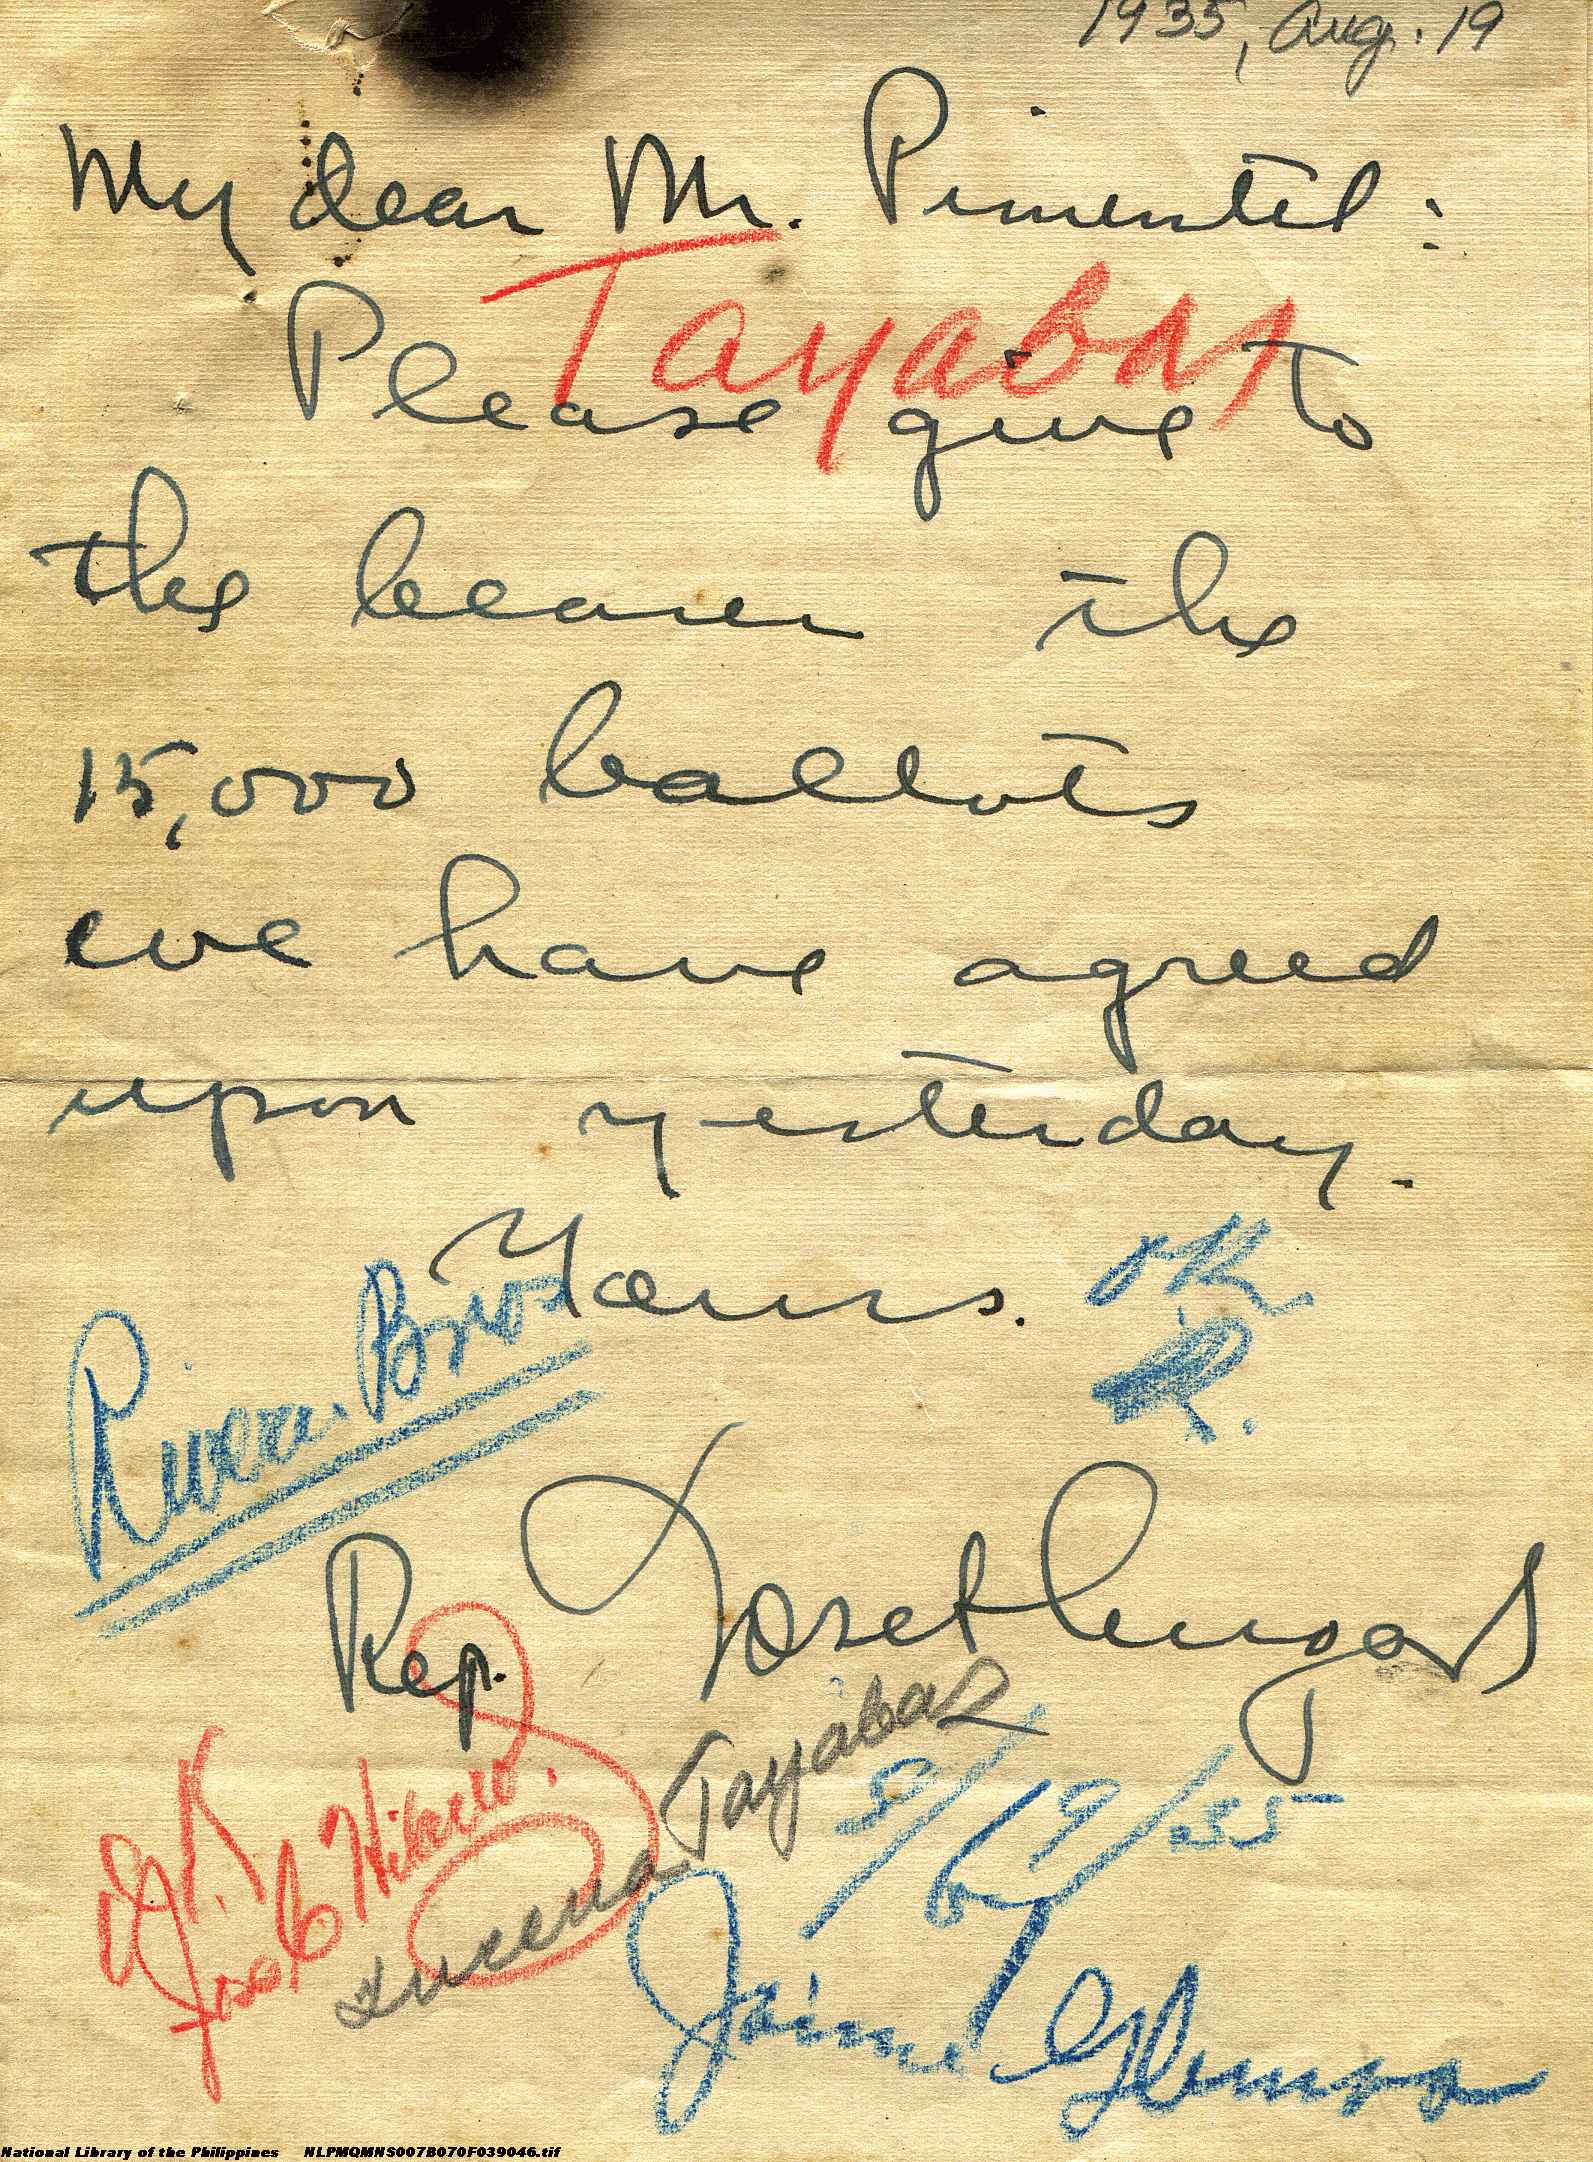 1935, Aug. 19
My dear Mr. Pimentel:
Tayabas
Please give to
the bearer the
15,000 ballots
we have agreed
upon yesterday.
Yours.
OK
R.
Rivera Bros
Rep.
OK
Lucena Tayabas
8/19/35
by
Jaime
National Library of the Philippines NLPMQMNS007B070F039046.tif